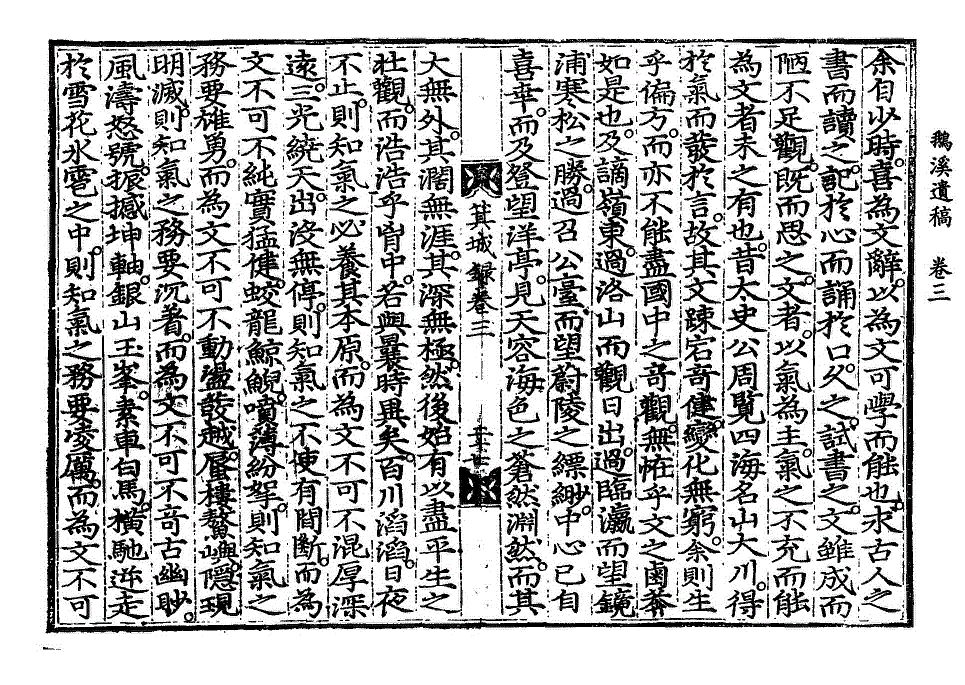 鵝溪遺稿　卷三
余自少時。喜為文辭。以為文可學而能也。求古人之
書而讀之。記於心而誦於口。久之。試書之。文雖成而
陋不足觀。旣而思之。文者。以氣為主。氣之不充而能
為文者未之有也。昔太史公周覽四海名山大川。得
於氣而發於言。故其文踈宕奇健。變化無窮。余則生
乎偏方。而亦不能盡國中之奇觀。無恠乎文之鹵莽
如是也。及謫嶺東。過洛山而觀日出。過臨瀛而望鏡
浦寒松之勝。過召公臺。而望蔚陵之縹緲。中心已自
喜幸。而及登望洋亭。見天容海色之蒼然淵然。而其
箕城錄卷三
大無外。其濶無涯。其深無極。然後始有以盡平生之
壯觀。而浩浩乎胷中。若與曩時異矣。百川滔滔。日夜
不止。則知氣之必養其本原。而為文不可不混厚深
遠。三光繞天。出沒無停。則知氣之不使有間斷。而為
文不可不純實猛健。蛟龍鯨鯢。噴薄紛挐。則知氣之
務要雄勇。而為文不可不動盪發越。蜃樓鰲嶼。隱現
明滅。則知氣之務要沉著。而為文不可不奇古幽眇。
風濤怒號。振撼坤軸。銀山玉峯。素車白馬。橫馳逆走
於雪花氷雹之中。則知氣之務要凌厲。而為文不可